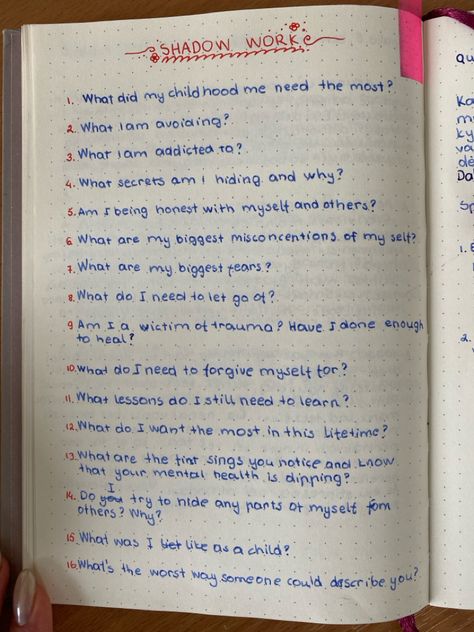 SHADOW WORK
1. What did my childhood me need the most?
2. What I am avoiding?
3. What I am addicted to?
4. What secrets am I hiding and why?
5. Am I being honest with myself and others?
6. What are my biggest misconcentions of my self?
7. What are my biggest fears?
8. What do I need to let go of?
9 Am I a victim of trauma? Have I done enough
to heal?
10. What do I need to forgive myself for?
11. What lessons do I still need to learn?
12. What do I want the most in this lifetime?
13. What are the first sings you notice and know
that your mental health is dipping?
14. Do I try to hide any parts of myself from
others? Why?
15. What was I like as a child?
16. What's the worst way someone could describe you?
Qu
Ka
m
ky
va
dė
Da
Sp
1.
2.